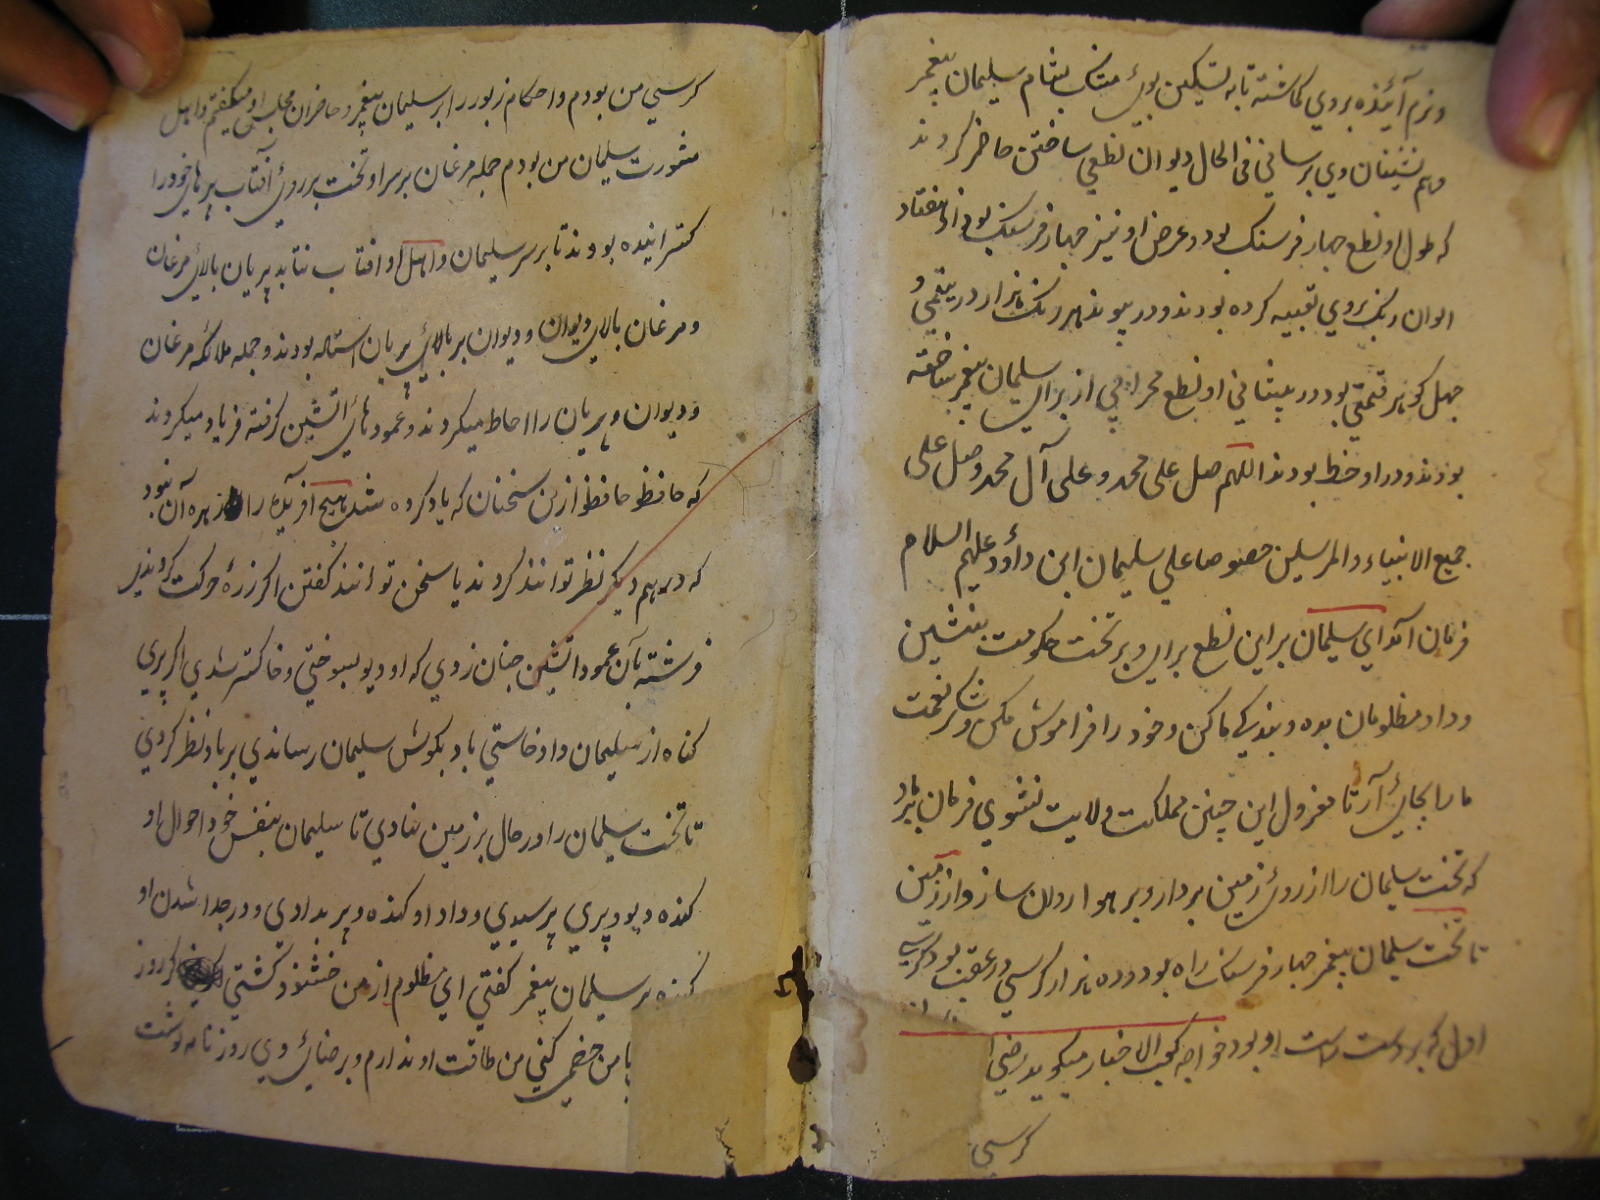 ونرم آئنده بروي کماشته تا به تسکین بوی مشک بمشام سلیمان پیغمبر
وهم نشینان وي برساني في الحال دیوان نطعي ساختن حاضر کردند
که طول او نطع چهار فرسنک بود و عرض او نیز چهار فرسنک بود از هفتاد
الوان رنک بروي تعبیه کرده بودند و در پیوند هر رنک هزار در یتیمي و
چهل کوهر قیمتي بود در پیشاني او نطع محرابي از براي سلیمان پیغمبر ساخته
بودند و در او خط بودند اللهم صل علی محمد و علی آل محمد وصل علی
جمیع الانبیاء والمرسلین خصوصا علي سلیمان ابن داؤد علیهم السلام
فرمان آمد اي سلیمان براین نطع براي و بر تخت حکومت بنشین
وداد مظلومان بده و بندیکي ما کن وخود را فراموش مکن و شکر نعمت
ما را بجاي آر تا معزول این چنین مملکت ولایت نشوي فرمان بباد
که تخت سلیمان را از روئ زمین بردار و بر هوا روان ساز و از زمین
تا تخت سلیمان پیغمبر چهار فرسنک راه بود و ده هزار کرسي در عقب بود کرسي
اول که بر دست راست او بود خواجه کعب الاخبار میکوید رضي
کرسي
کرسي من بودم و احکام زبور را بر سلیمان پیغمبر و حاضران مجلس او میکفتم و اهل
مشورت سلیمان من بودم جمله مرغان بر سر او تخت بر روئ آفتاب پر هاي خود را
کسترانیده بودند تا بر سر سلیمان واهل او افتاب نتابد پریان بالاي مرغان
و مرغان بالاي دیوان و دیوان بر بالاي پریان استاده بودند و جمله ملائکه مرغان
و دیوان و پریان را احاط میکردند و عمود هاي اتشین کرفته فریاد میکردند
که حافظو حافظو ازین سخنان که یاد کرده شد هیچ آفریده را زهره آن نبود
که در هم دیکر نظر توانند کردند یا سخن توانند کفتن اکر ذرهٔ حرکت کردندي
فرشته بآن عمود اتشین چنان زدي که او دیو بسوختي و خاکستر شدي اکر پري
کناه از سلیمان داد خاستي باد بکوش سلیمان رساندي بر باد نظر کردي
تا تخت سلیمان را در حال بر زمین نهادي تا سلیمان بنفس خود احوال او
کننده دیو و پري پرسیدي و داد او کننده و پریدادي و در جدا شدن او
کننده بر سلیمان پیغمبر کفتي اي مظلوم از من خشنود کشتي که روز
با من خصمي کني من طاقت او ندارم و بر ضائ وي روز نامه نوشت